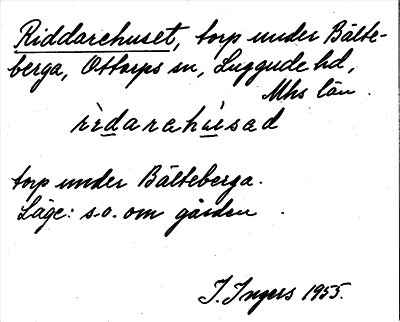 Riddarehuset, torp under Bälte-
berga, Ottarps sn, Luggude hd,
Mhs län.
rìdarehùsad
torp under Bälteberga.
Läge: s.o. om gården.
I. Ingers 1955.